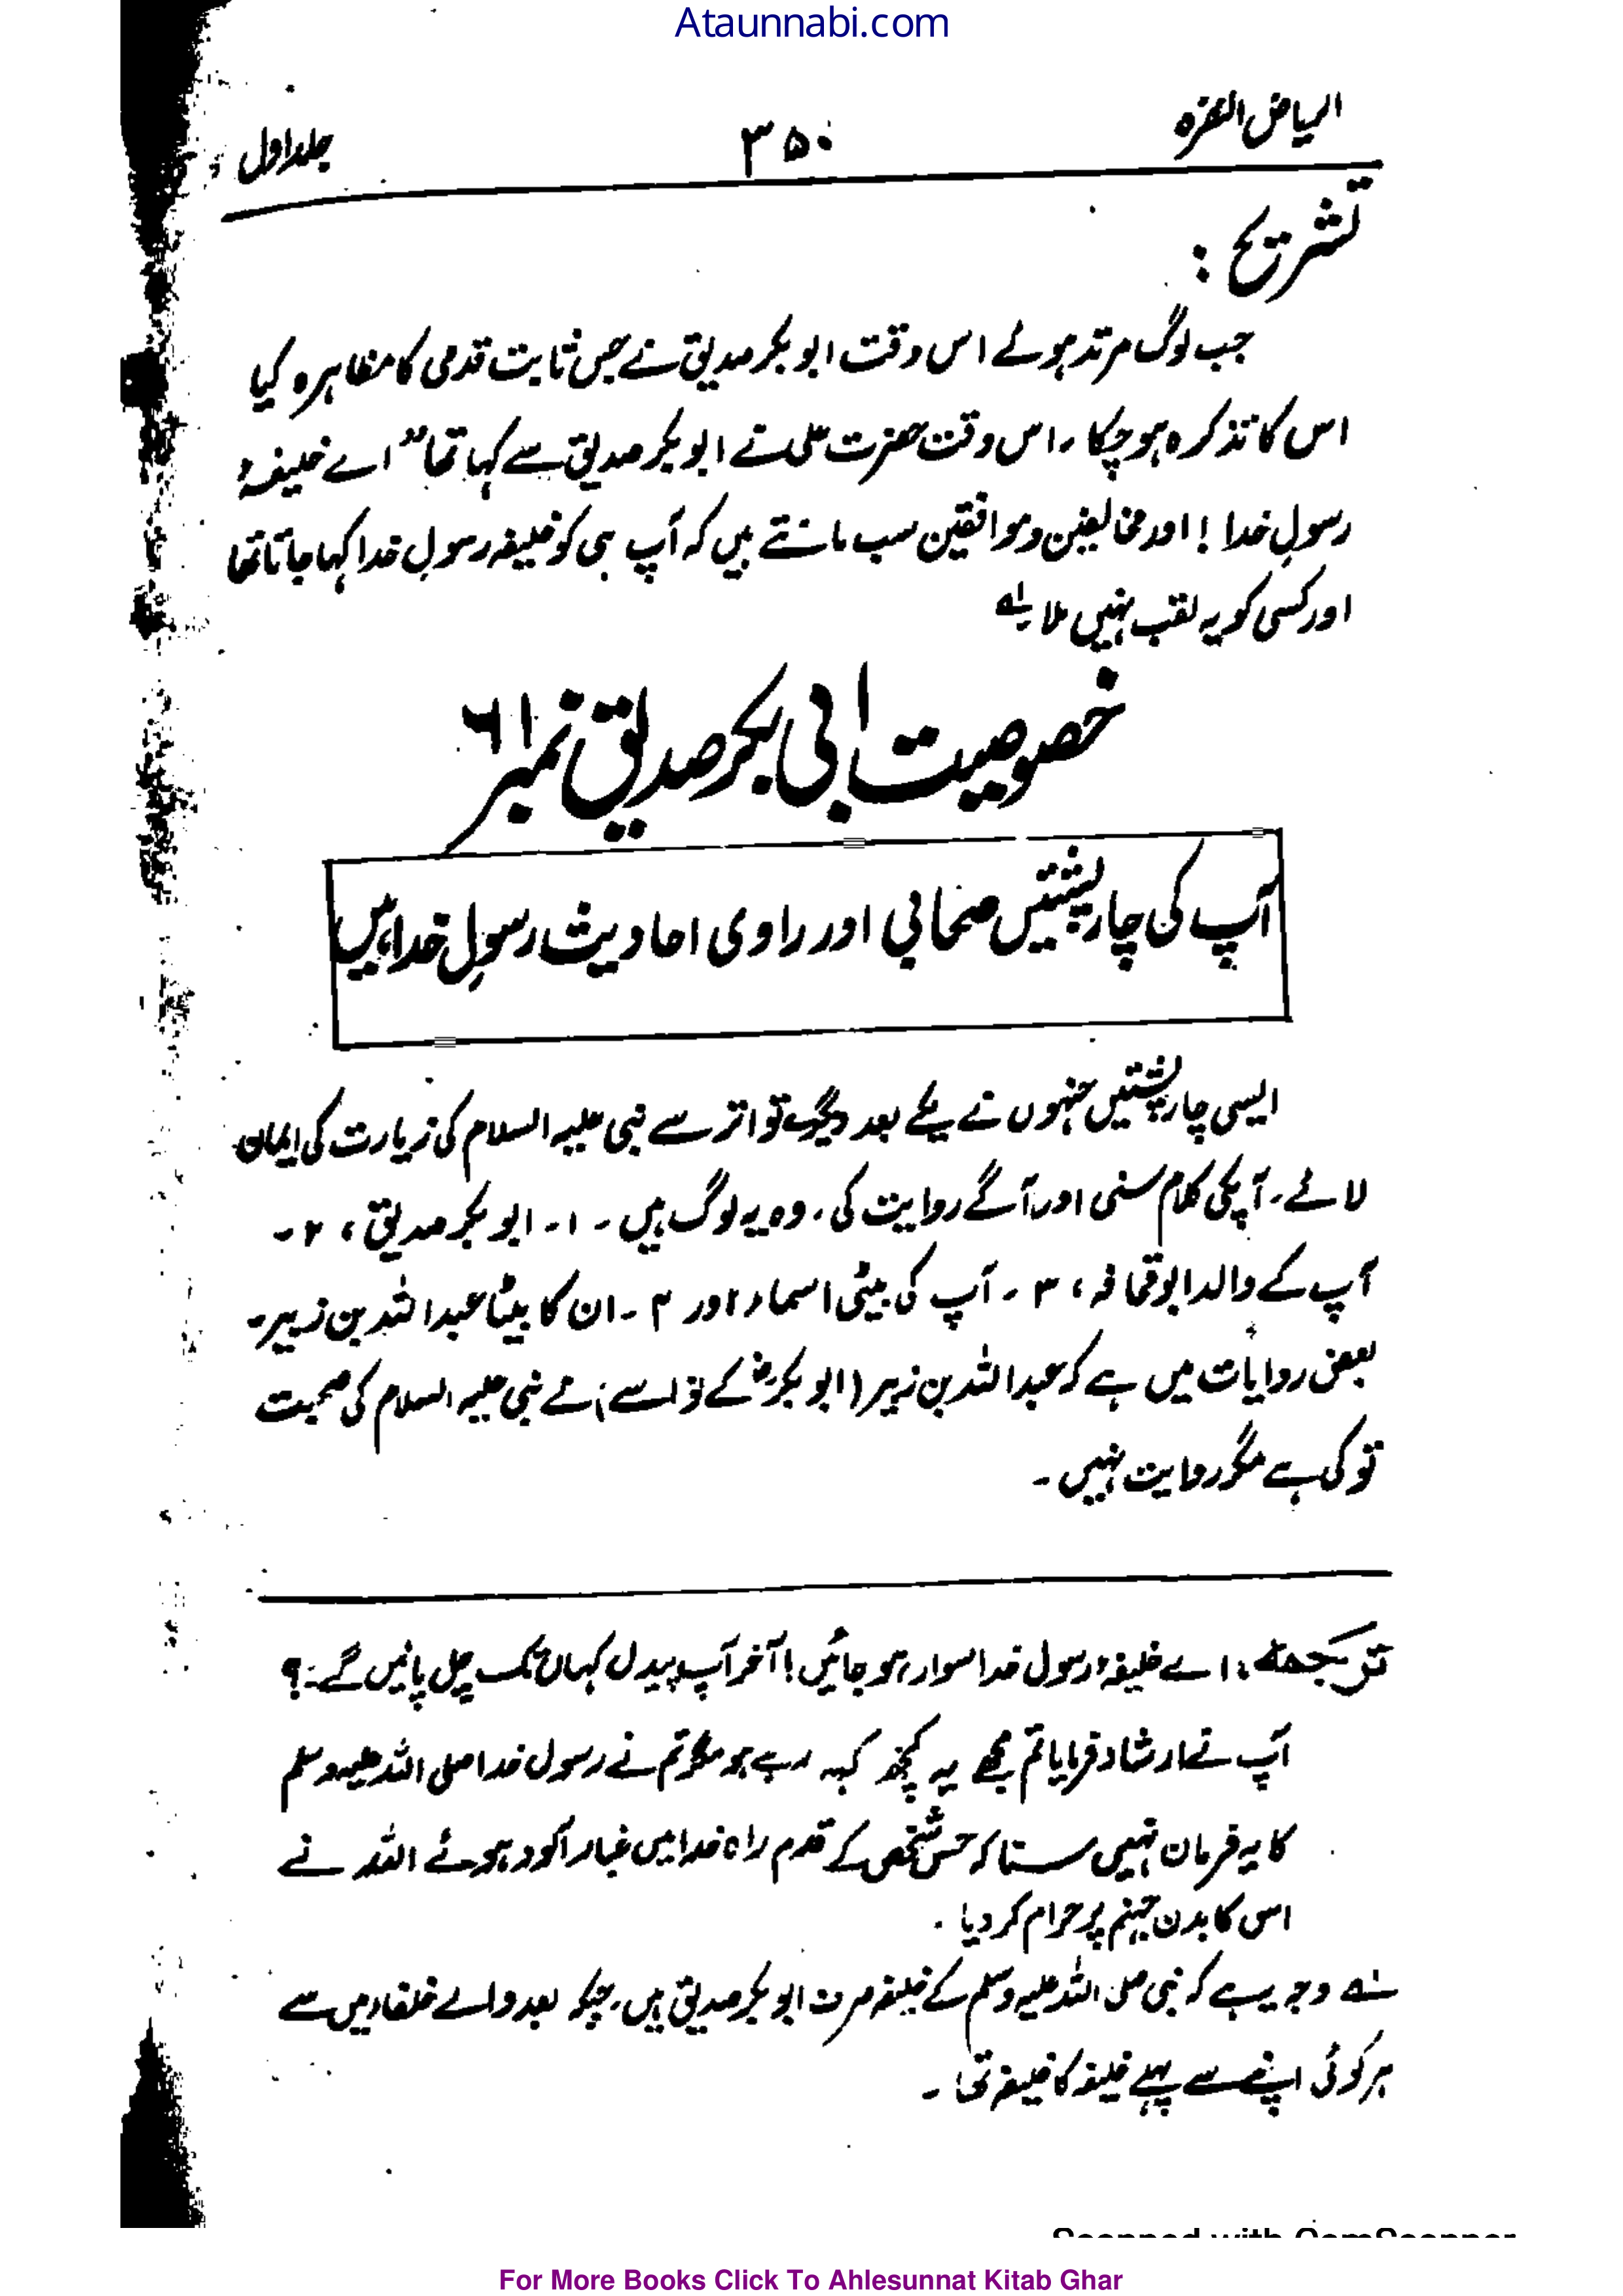 Ataunnabi.com
الریاض النضرہ ۳۵۰ جلد اول
تشریح :
جب لوگ مرتد ہوئے اس وقت ابو بکر صدیق نے جس ثابت قدمی کا مظاہرہ کیا
اس کا تذکرہ ہو چکا ، اس وقت حضرت علی نے ابو بکر صدیق سے کہا تھا " اے خلیفۂ
رسولِ خدا ! اور مخالفین و موافقین سب مانتے ہیں کہ آپ ہی کو خلیفہ رسولِ خدا کہا جاتا تھا
اور کسی کو یہ لقب نہیں ملا۔ لہ
خصوصیت ابی بکر صدیق نمبر ۶۱
آپ کی چار پشتیں صحابی اور راوی احادیث رسولِ خدا ہیں
ایسی چار پشتیں جنہوں نے یکے بعد دیگرے تواتر سے نبی علیہ السلام کی زیارت کی ایمان
لائے ۔ آپکی کلام سنی اور آگے روایت کی ، وہ یہ لوگ ہیں ۔ ۱۔ ابو بکر صدیق ، ۲ ۔
آپ کے والد ابو قحافہ ، ۳ ۔ آپ کی بیٹی اسماء اور ۴ ۔ ان کا بیٹا عبد اللہ بن زبیر ۔
بعض روایات میں ہے کہ عبد اللہ بن زبیر (ابو بکرؓ کے نواسے) نے نبی علیہ السلام کی صحبت
تو کی ہے مگر روایت نہیں ۔
ترجمہ : اے خلیفۂ رسول خدا سوار ہو جائیں ! آخر آپ پیدل کہاں تک چل پائیں گے ۔؟
آپ نے ارشاد فرمایا تم مجھے یہ کچھ کہہ رہے ہو مگر تم نے رسول خدا صلی اللہ علیہ وسلم
کا یہ فرمان نہیں سنا کہ جس شخص کے قدم راہ خدا میں غبار آلود ہوئے اللہ نے
اس کا بدن جہنم پر حرام کر دیا ۔
لہ وجہ یہ ہے کہ نبی صلی اللہ علیہ وسلم کے خلیفہ صرف ابو بکر صدیق ہیں ، جبکہ بعد والے خلفاء میں سے
ہر کوئی اپنے سے پہلے خلیفہ کا خلیفہ تھا ۔
Scanned with CamScanner
For More Books Click To Ahlesunnat Kitab Ghar